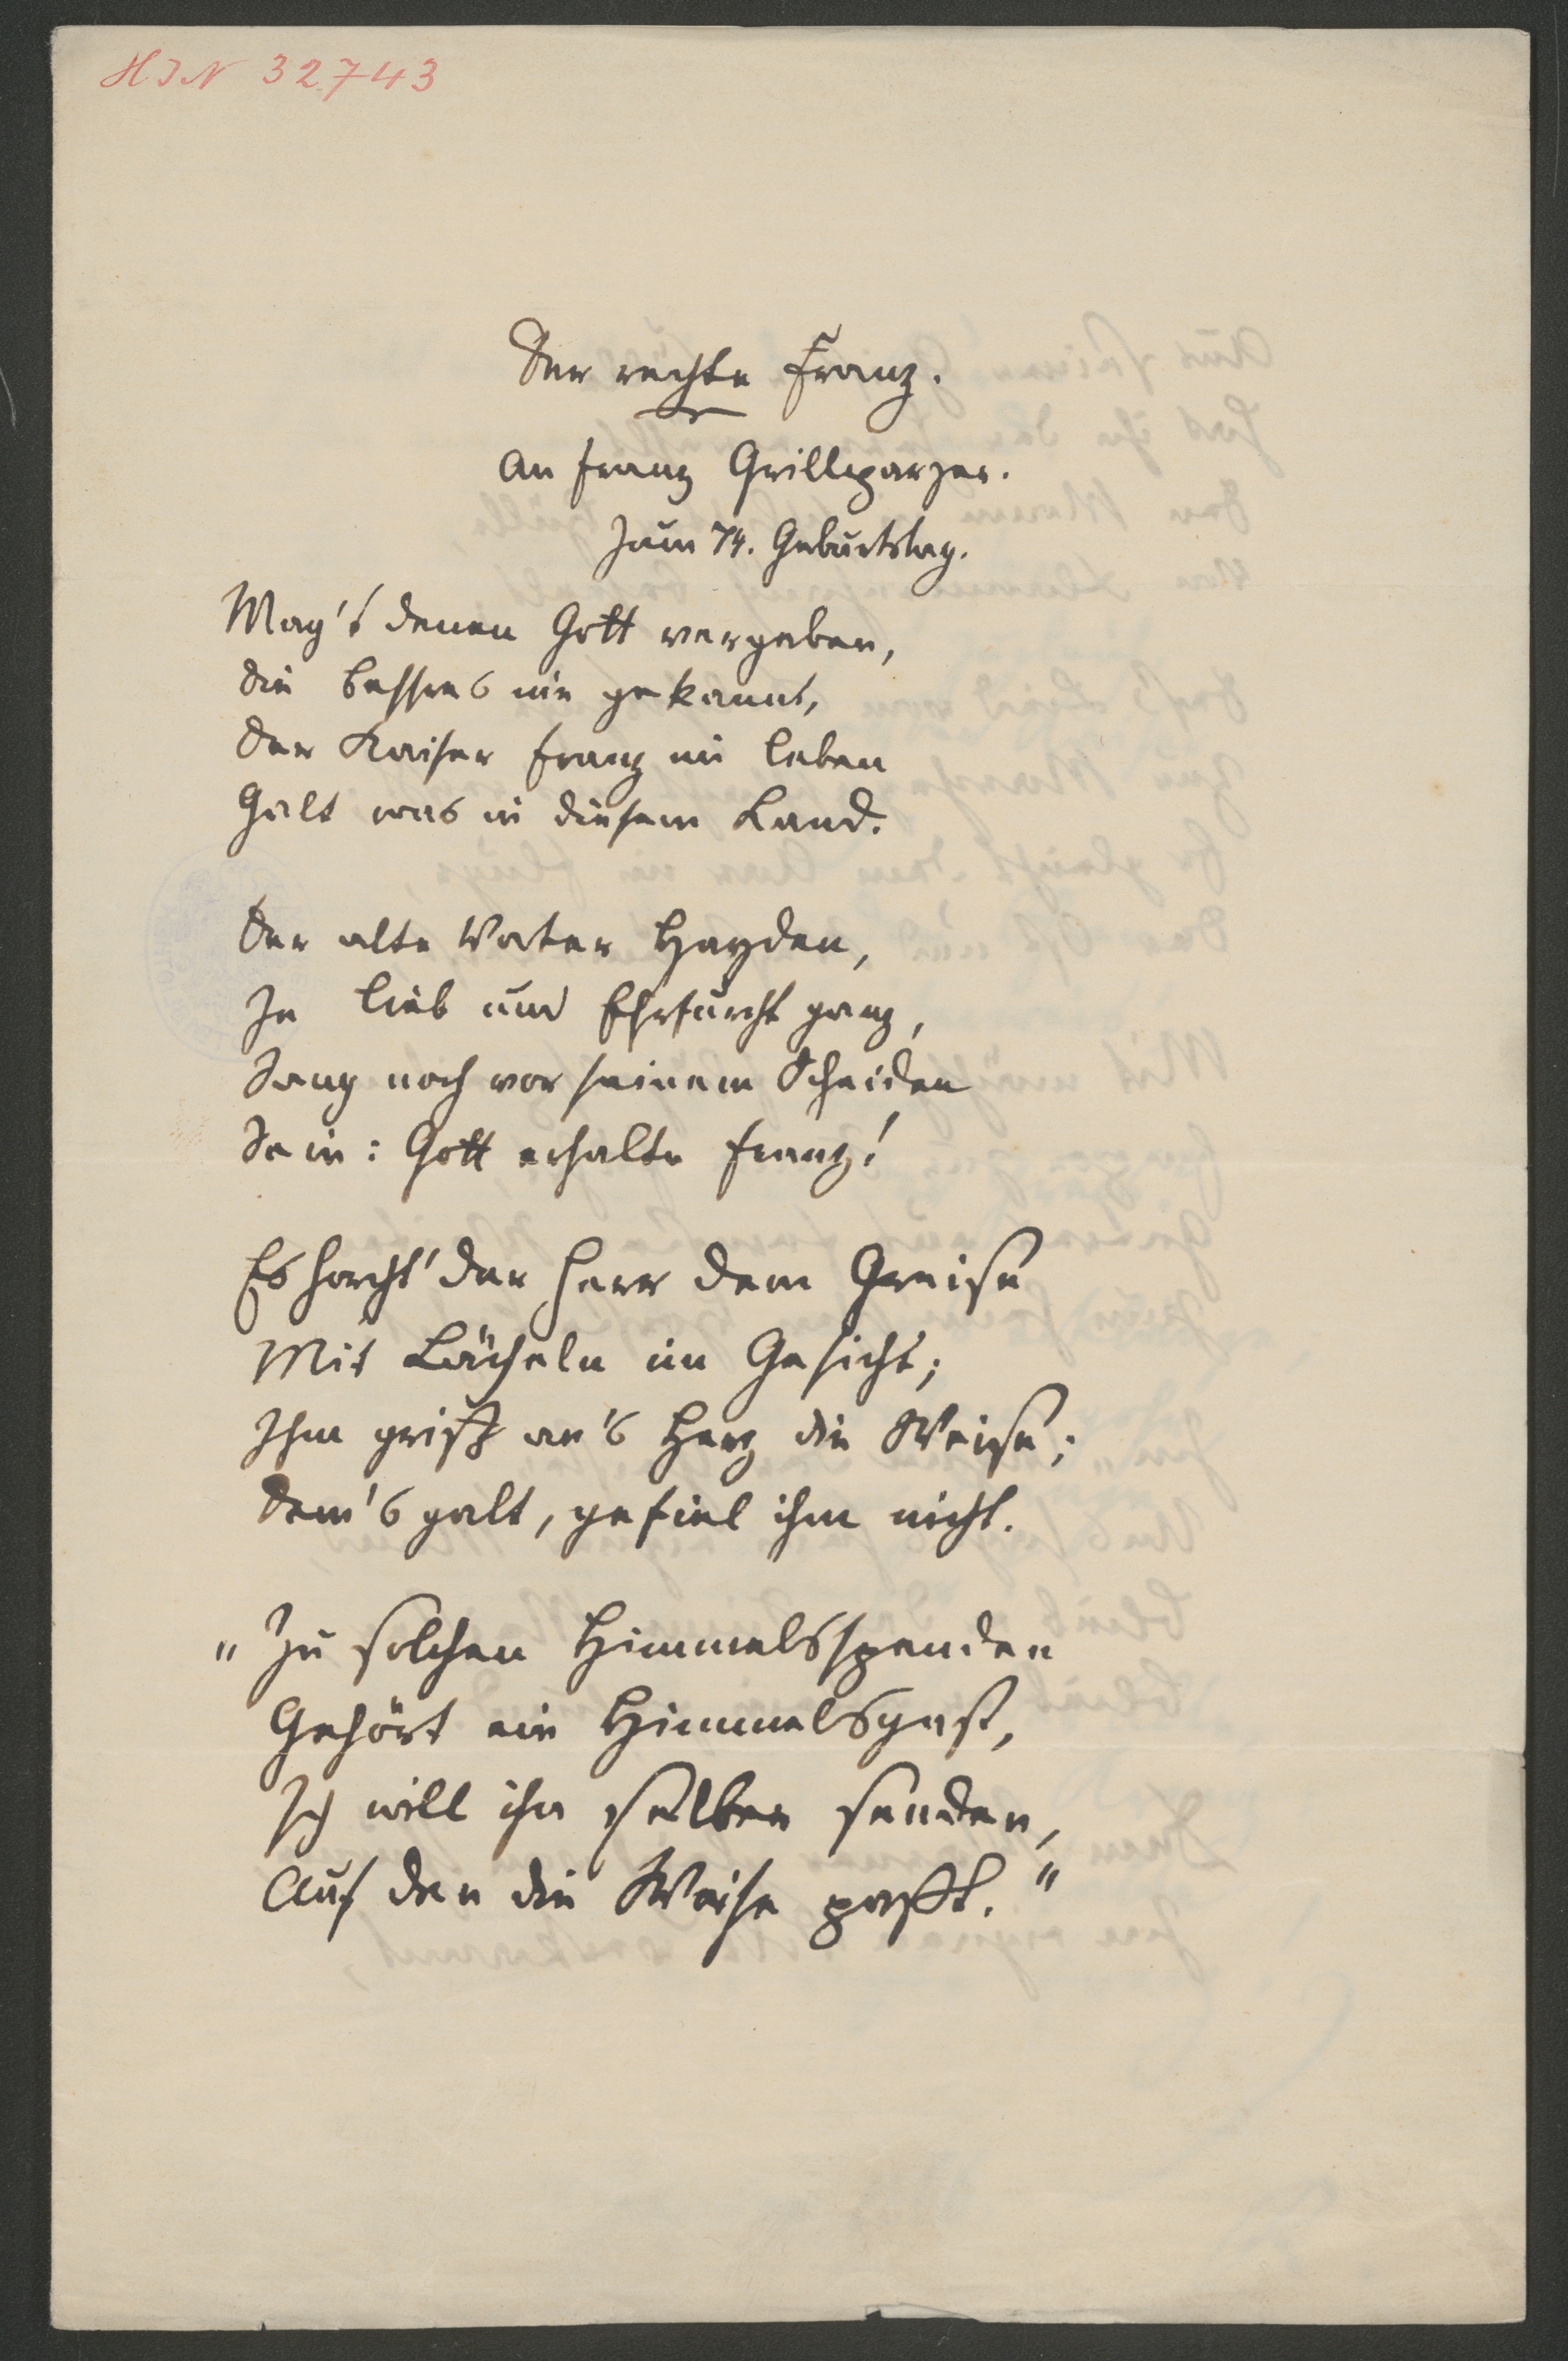 HIN 32743
Der rechte Franz.
An Franz Grillparzer.
Zum 74. Geburtstag.
Mag's denen Gott vergeben,
Die Bessres nie gekannt,
Der Kaiser Franz im Leben
Galt was in diesem Land.
Der alte Vater Hayden,
In Lieb und Ehrfurcht ganz,
Sang noch vor seinem Scheiden
Sein: Gott erhalte Franz!
Es horcht' der Herr dem Greise
Mit Lächeln im Gesicht;
Ihm griff an's Herz die Weise;
Dem's galt, gefiel ihm nicht.
„Zu solchen Himmelsspenden
Gehört ein Himmelsgast,
Ich will ihn selber senden,
Auf den die Weise passt."